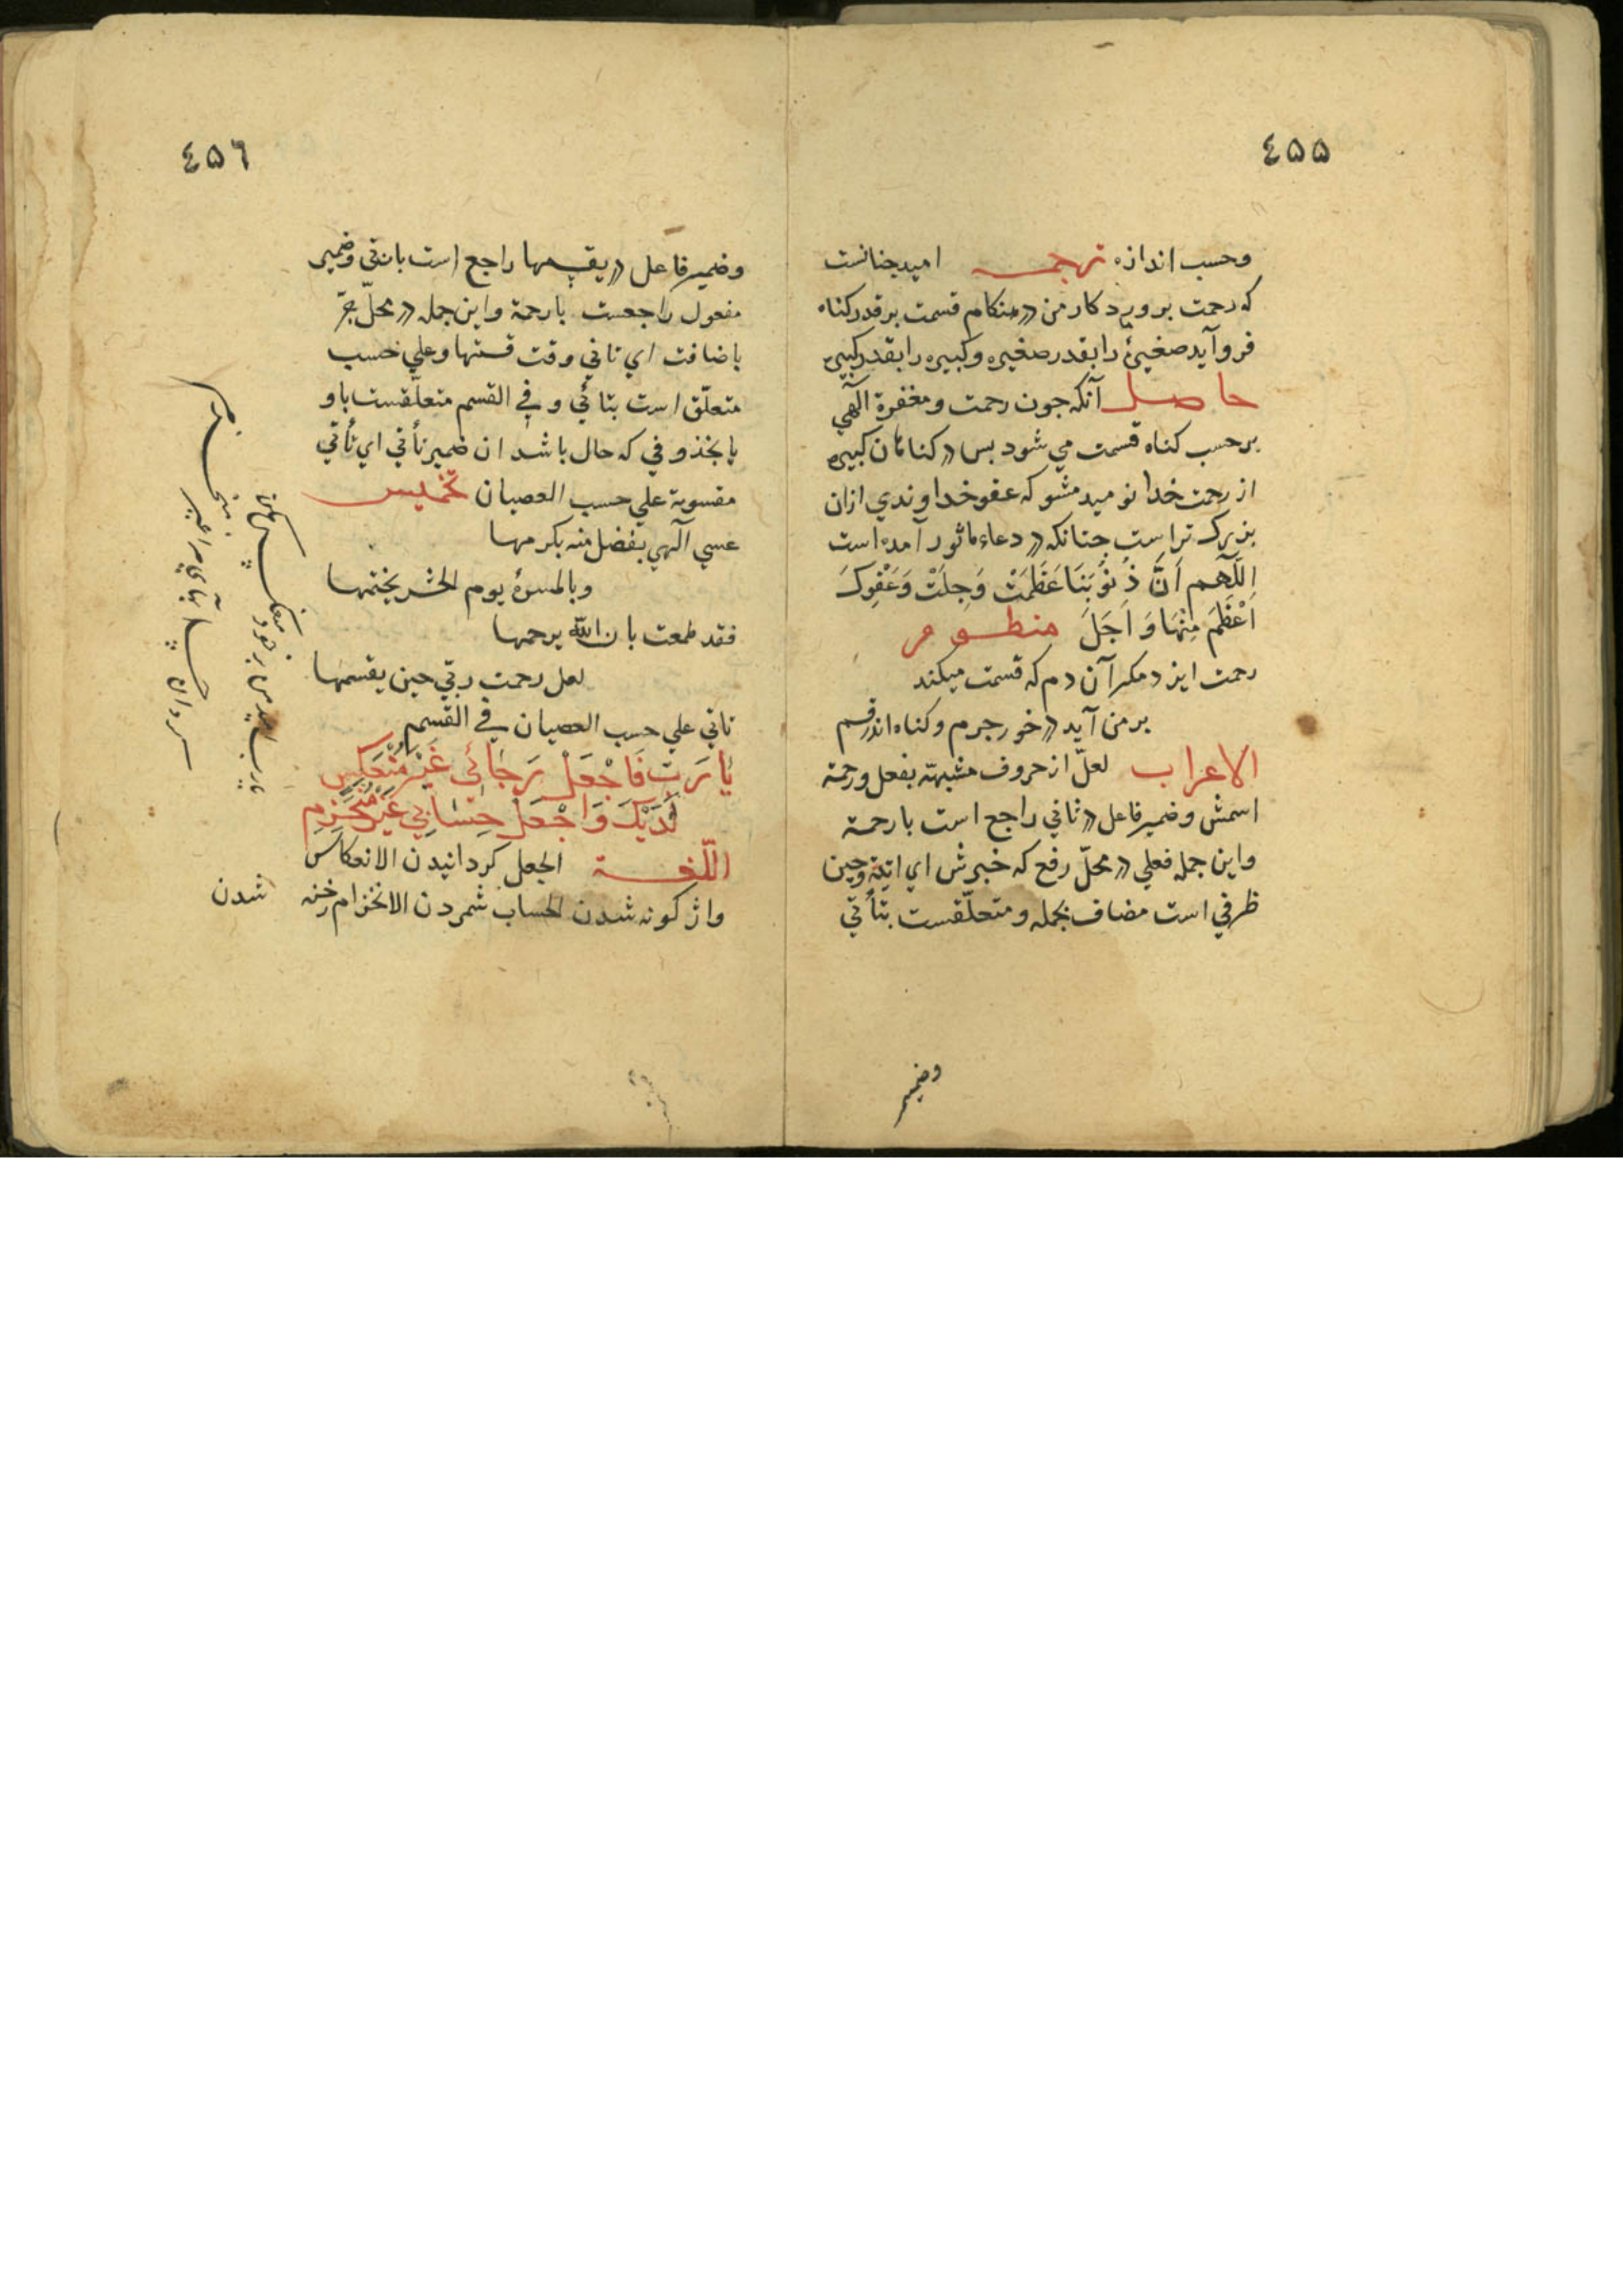 ٤٥٥
وحسب اندازه ترجمــه اميد جنانست
كه رحمت برورد كار من در هنكام قسمت بر قدر كناه
فرو آيد صغيرهٔ را بقدر صغيره وكبيره را بقدر كبيره
حاصل آنكه جون رحمت ومغفرة الٓهي
بر حسب كناه قسمت مي شود بس در كناهان كبيره
از رحمت خدا نوميد مشو كه عفو خداوندي ازان
بزرك تر است جنانكه در دعاء ماثور آمده است
اللّٰهم اَنَّ ذُنُوْبَنَا عَظُمَتْ وَجِلَتْ وَعَفْوكَ
اَعْظَمَ مِنْهَا وَاَجَلَ منظـــومه
رحمت ايزد مكر آن دم كه قسمت ميكند
بر من آيد در خور جرم وكناه اندر قسم
الاعراب لعلّ از حروف مشبهة بفعل ورحمة
اسمش وضمير فاعل در تاتي راجع است با رحمة
واين جمله فعلي در محلّ رفع كه خبرش اي اتية وحين
ظرفي است مضاف بجمله ومتعلّقست بتأتي
وضمير
٤٥٦
وضمير فاعل در يقسمها راجع است با ربّي وضمير
مفعول راجعست با رحمة واين جمله در محلّ جرّ
باضافت اي تاتي وقت قسمتها وعلي حسب
متعلّق است بتاتي و في القسم متعلّقست باو
يا بمحذوفي كه حال باشد ان ضمير تأتي اي تأتي
مقسومة علي حسب العصيان تخميس
عسي آلهي بفضل منه يكرمها
وبالمسرة يوم الحشر يختمها
فقد طمعت بان الله يرحمها
لعل رحمت ربّي حين يقسمها
تاتي علي حسب العصيان في القسم
يَا رَبِّ فَاجْعَلْ رَجَائِي غَيْرَ مُنْعَكِسٍ
لَدَيْكَ وَاجْعَلْ حِسَابِي غَيْرَ مُنْخَرِمِ
اللّغـــة الجعل كردانيدن الانعكاس
واژكونه شدن الحساب شمردن الانخرام رخنه شدن